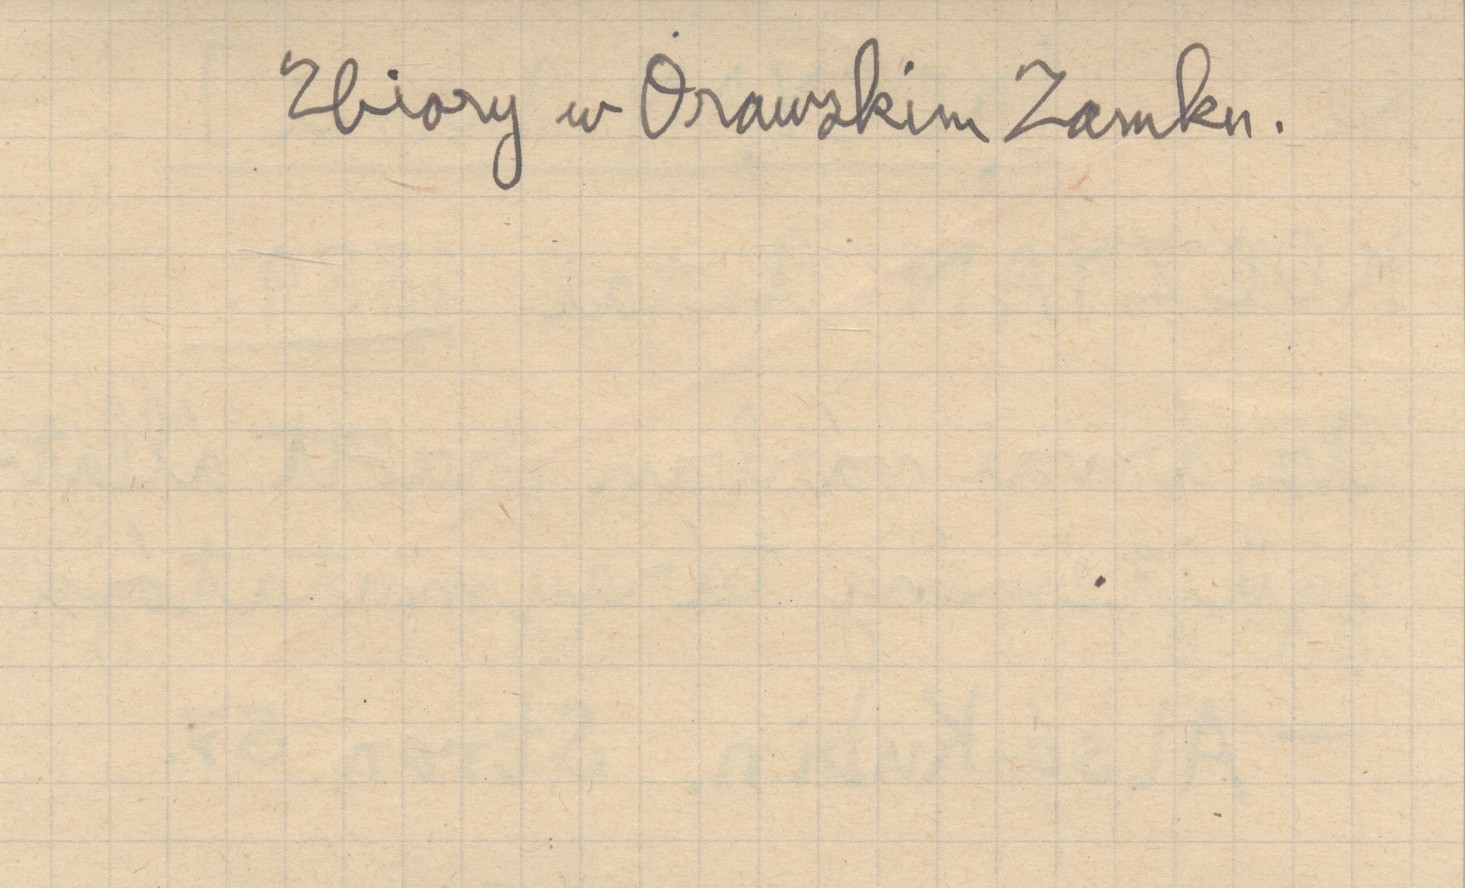 Zbiory w Orawskim Zamku.